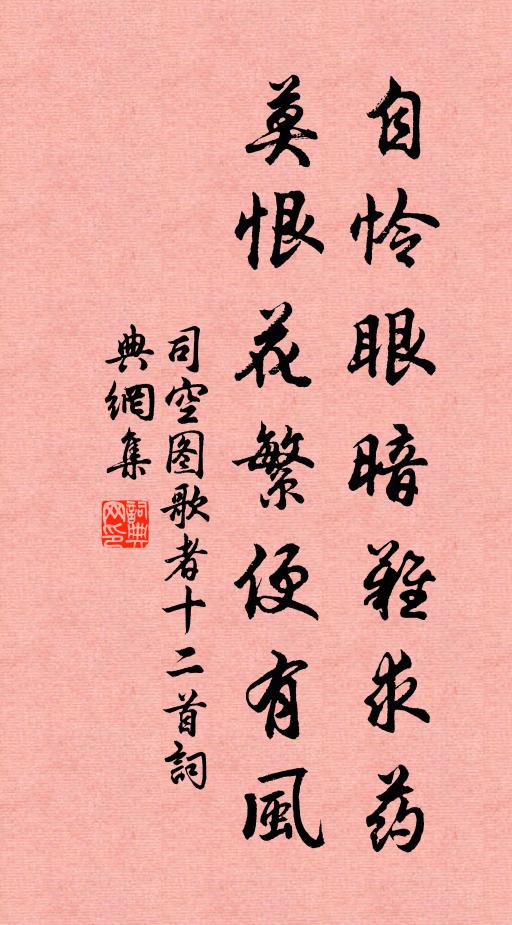 自怜眼暗難求药
莫恨花繁便有風
司空图歌者十二首詞
典網集
詞典网印